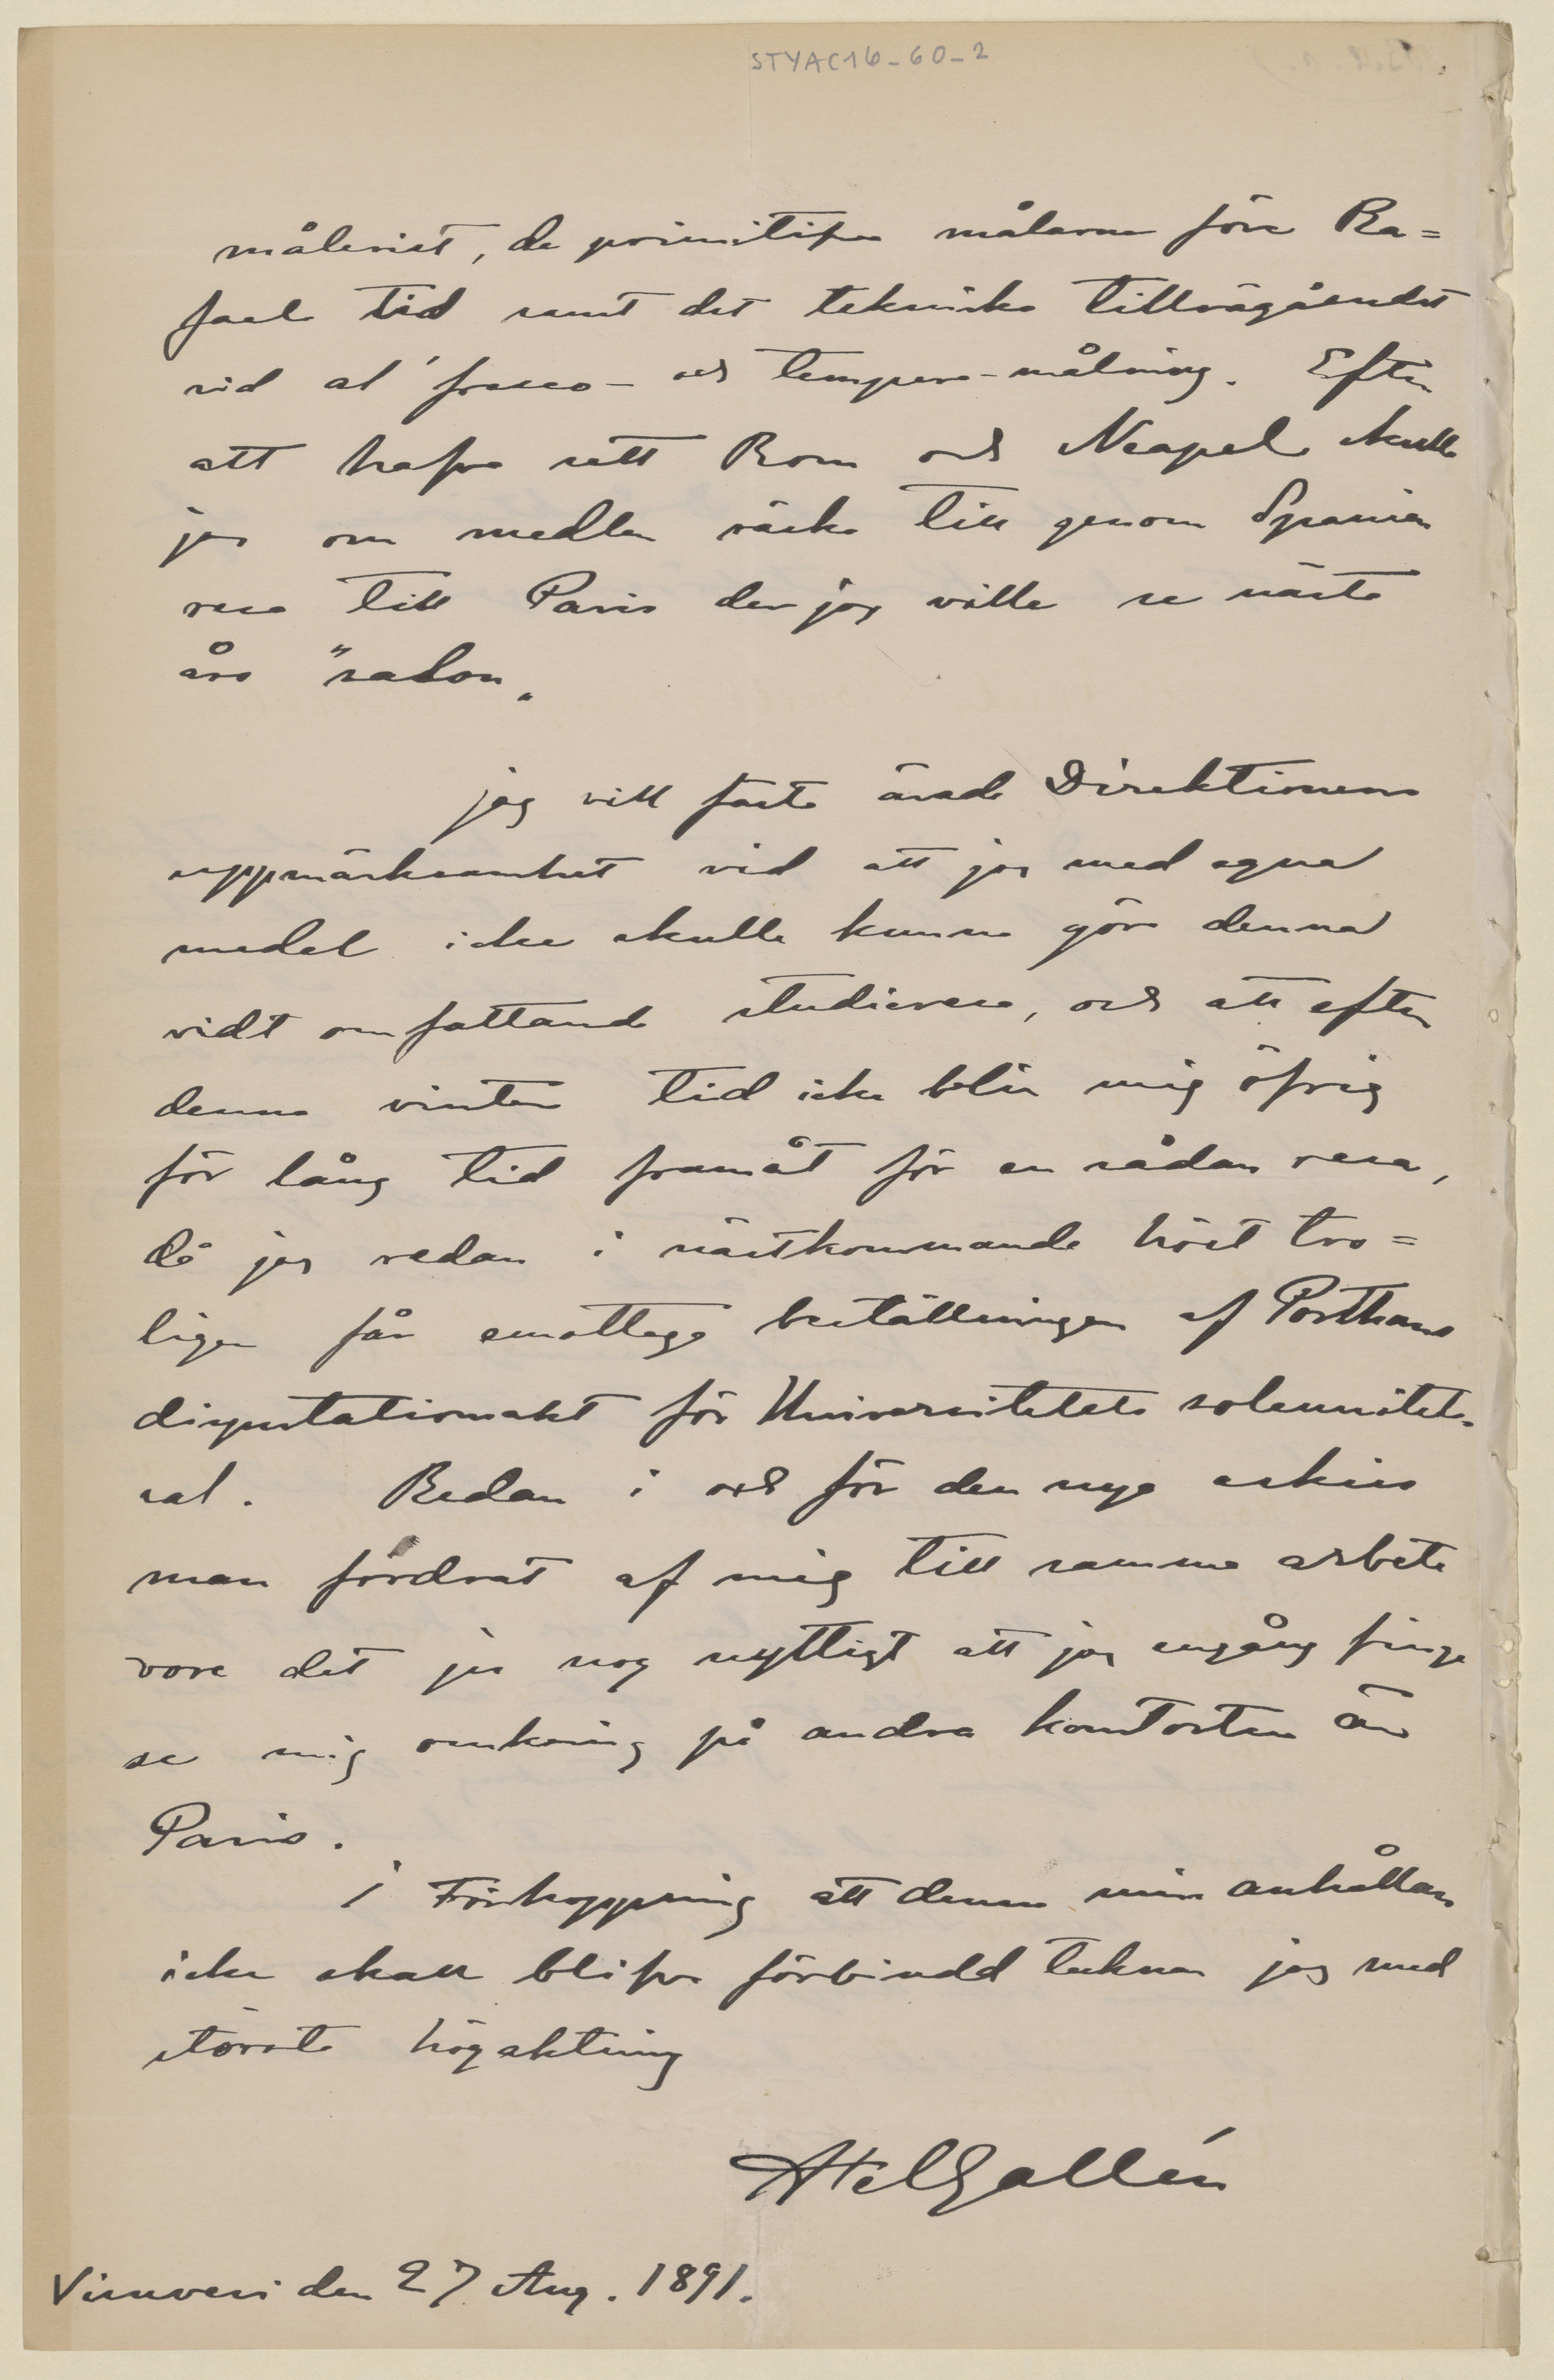 STYAC16-60-2
måleriet, de primitifva målarne före Ra=
faels tid samt det tekniska tillvägåendet
vid al' fresco- och tempera-målning. Efter
att hafva sett Rom och Neapel skulle
jag om medlen räcka till genom Spanien
resa till Paris der jag ville se nästa
års "salon„
jag vill fästa ärade Direktionens
uppmärksamhet vid att jag med egna
medel icke skulle kunna göra denna
vidt omfattande studieresa, och att efter
denna vinter tid icke blir mig öfrig
för lång tid framåt för en sådan resa,
då jag redan i nästkommande höst tro=
ligen får emottaga beställningen af Porthans
disputationsakt för Universitetets solennitets-
sal. Redan i och för den nya eskiss
man fordrat af mig till samma arbete
vore det ju nog nyttigt att jag engång finge
se mig omkring på andra konstorter än
Paris.
i Förhoppning att denna min anhållan
icke skall blifva förbisedd tecknar jag med
största högaktning
Axel Gallén
Visuvesi den 27 Aug. 1891.